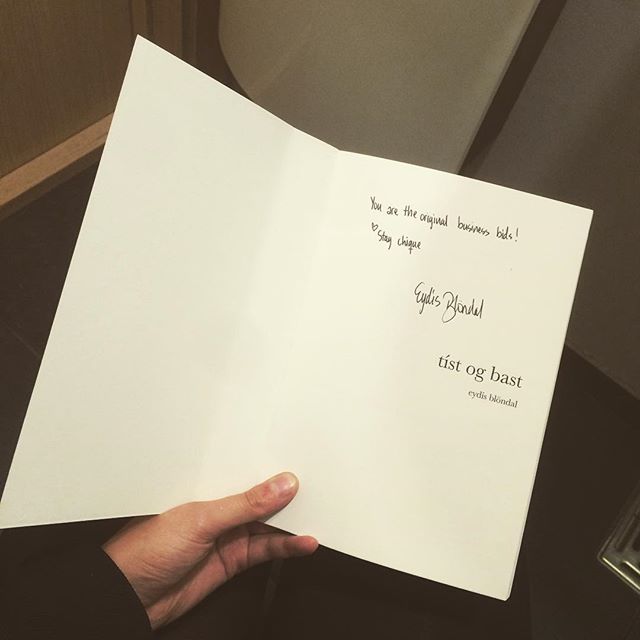 You are the original business bids!
♡ Stay chique
Eydís Blöndal
tíst og bast
eydís blöndal